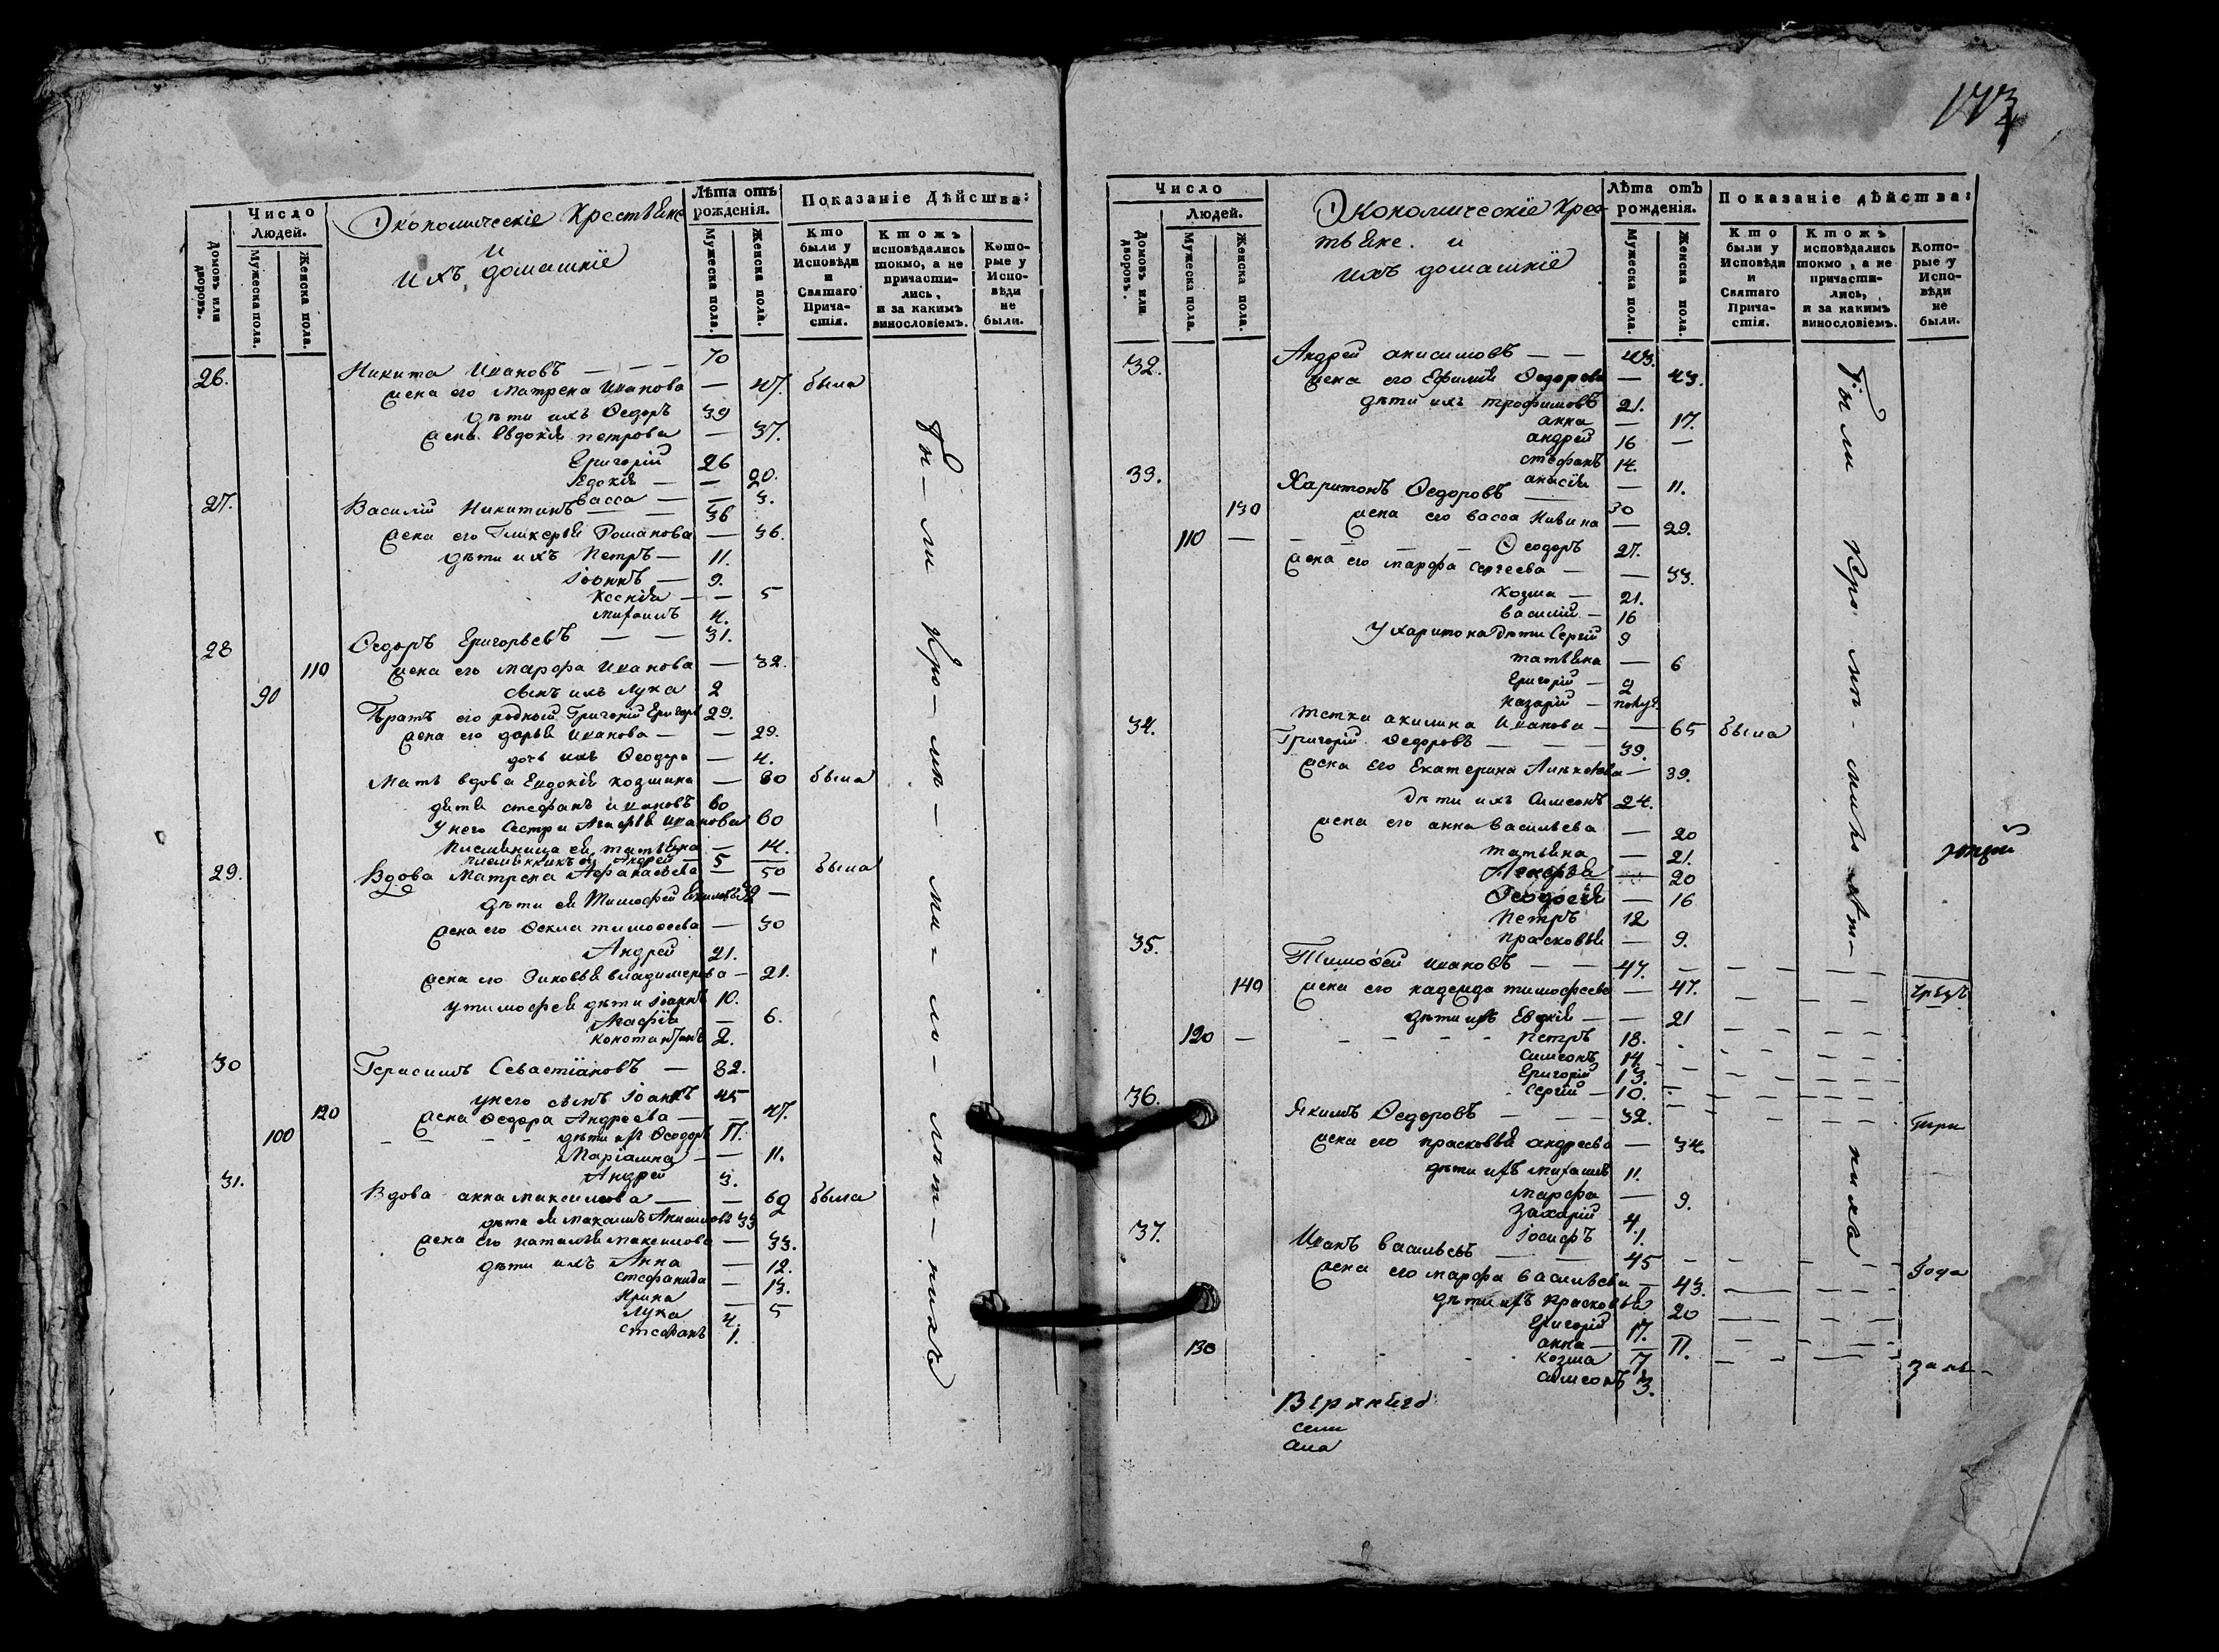 Число Людей.
Домовъ или дворовъ.
Мужеска пола.
Женска пола.
Экономическiе Крестьяне
и
ихъ домашнiе
Лѣта отъ рожденiя.
Мужеска пола.
Женска пола.
Показанiе Дѣйства:
Кто были у Исповѣди и Святаго Прича-стiя.
Ктожъ исповѣдались токмо, а не причасти-лись, и за какимъ винословiемъ.
Кото-рые у Испо-вѣди не были.
26. Никита Ивановъ — — — 70
жена его Матрена Иванова — 47. была
дѣти ихъ Ѳедоръ 39
жена Евдокiя петрова — 37.
Григорiй 26
— — 20.
Васса — — 3.
27. Василiй Никитинъ — — 36
жена его Гликерья Романова — 36.
дѣти ихъ Петръ — 11.
Iоаннъ — 9.
Ксенiя — — 5
михаилъ 4.
28 Ѳедоръ Григорьевъ — — 31.
110 жена его марѳа Иванова — 32.
90 сынъ ихъ Лука 2
Братъ его родный Григорiй 29.
жена его дарья Иванова — — 29.
дочь ихъ Ѳеодора — 4.
Мать вдова Евдокiя козмина — 60 была
стефанъ ивановъ 60
У него Сестра Агафья Иванова 60
татьяна — 14.
Андрей — 5
29. Вдова Матрена Афанасьева — 50 была
дѣти ея Тимофей
жена его Ѳекла тимоѳеева — 30
Андрей 21.
жена его Зиновья владимерова — 21.
у тимофея дѣти Iоаннъ 10.
Агафiя — 6.
Константинъ 2.
30 Герасимъ Севастiановъ — 82.
у него сынъ Iоаннъ 45
120 жена Ѳедора Андреева — — 47.
100 — — — — дѣти ихъ Ѳеодоръ 17.
Марiамна — — 11.
Андрей 3.
31. Вдова анна максимова — — 62 была
дѣти ея 33
жена его наталья максимова — 33.
дѣти ихъ Анна — 12.
стефанида — 13.
Ирина — 5
Лука 4.
стефанъ 1.
бы — ли кро — мѣ — ма — ло — лѣт — нихъ
173
Число Людей.
Домовъ или дворовъ.
Мужеска пола.
Женска пола.
Экономическiе Крес-
тьяне. и
ихъ домашнiе
Лѣта отъ рожденiя.
Мужеска пола.
Женска пола.
Показанiе дѣйства:
Кто были у Исповѣди и Святаго Прича-стiя.
Ктожъ исповѣдались токмо, а не причасти-лись, и за какимъ винословiемъ.
Кото-рые у Испо-вѣди не были.
32. Андрей анисимовъ — — 43.
жена его Ефимiя Ѳедорова — 43.
дѣти ихъ трофимовъ 21.
анна — 17.
андрей 16 —
стефанъ 14.
анисiя — 11.
33. Харитонъ Ѳедоровъ — 30
130 жена его васса — 29.
110 — — — — Ѳеодоръ 27.
жена его марѳа Сергеева — — 33.
Козма — 21.
василiй — 16
У харитона дѣти Сергiй 9
татьяна — 6
Григорiй — 2
назарiй —
тетка акилина Иванова — — 65 была
34. Григорiй Ѳедоровъ — — — 39.
жена его Екатерина — 39.
дѣти ихъ Симеонъ 24.
жена его анна васильева — 20
татьяна — 21.
Агафья — 20
Ѳеодосiя — 16
Петръ 12
прасковья — 9.
35. Тимоѳей ивановъ — — 47.
140 жена его надежда тимофеева — 47.
дѣти ихъ — — 21
120 — — — — — Петръ 18.
Симеонъ 14.
Григорiй 13.
Сергiй — 10.
36. Якимъ Ѳедоровъ — — — 32.
жена его прасковья андреева — 34.
дѣти ихъ михаилъ 11.
марѳа — 9.
захарiй 4.
Iосифъ 1.
37. Иванъ васильевъ — — 45
жена его марѳа васильева — 43.
дѣти ихъ прасковья 20
Григорiй 17.
анна — — 11.
130 Козма 7.
симеонъ 3.
бы ли кро мѣ — малолѣт — нихъ
чрезъ
три
года
Верхняго
сели